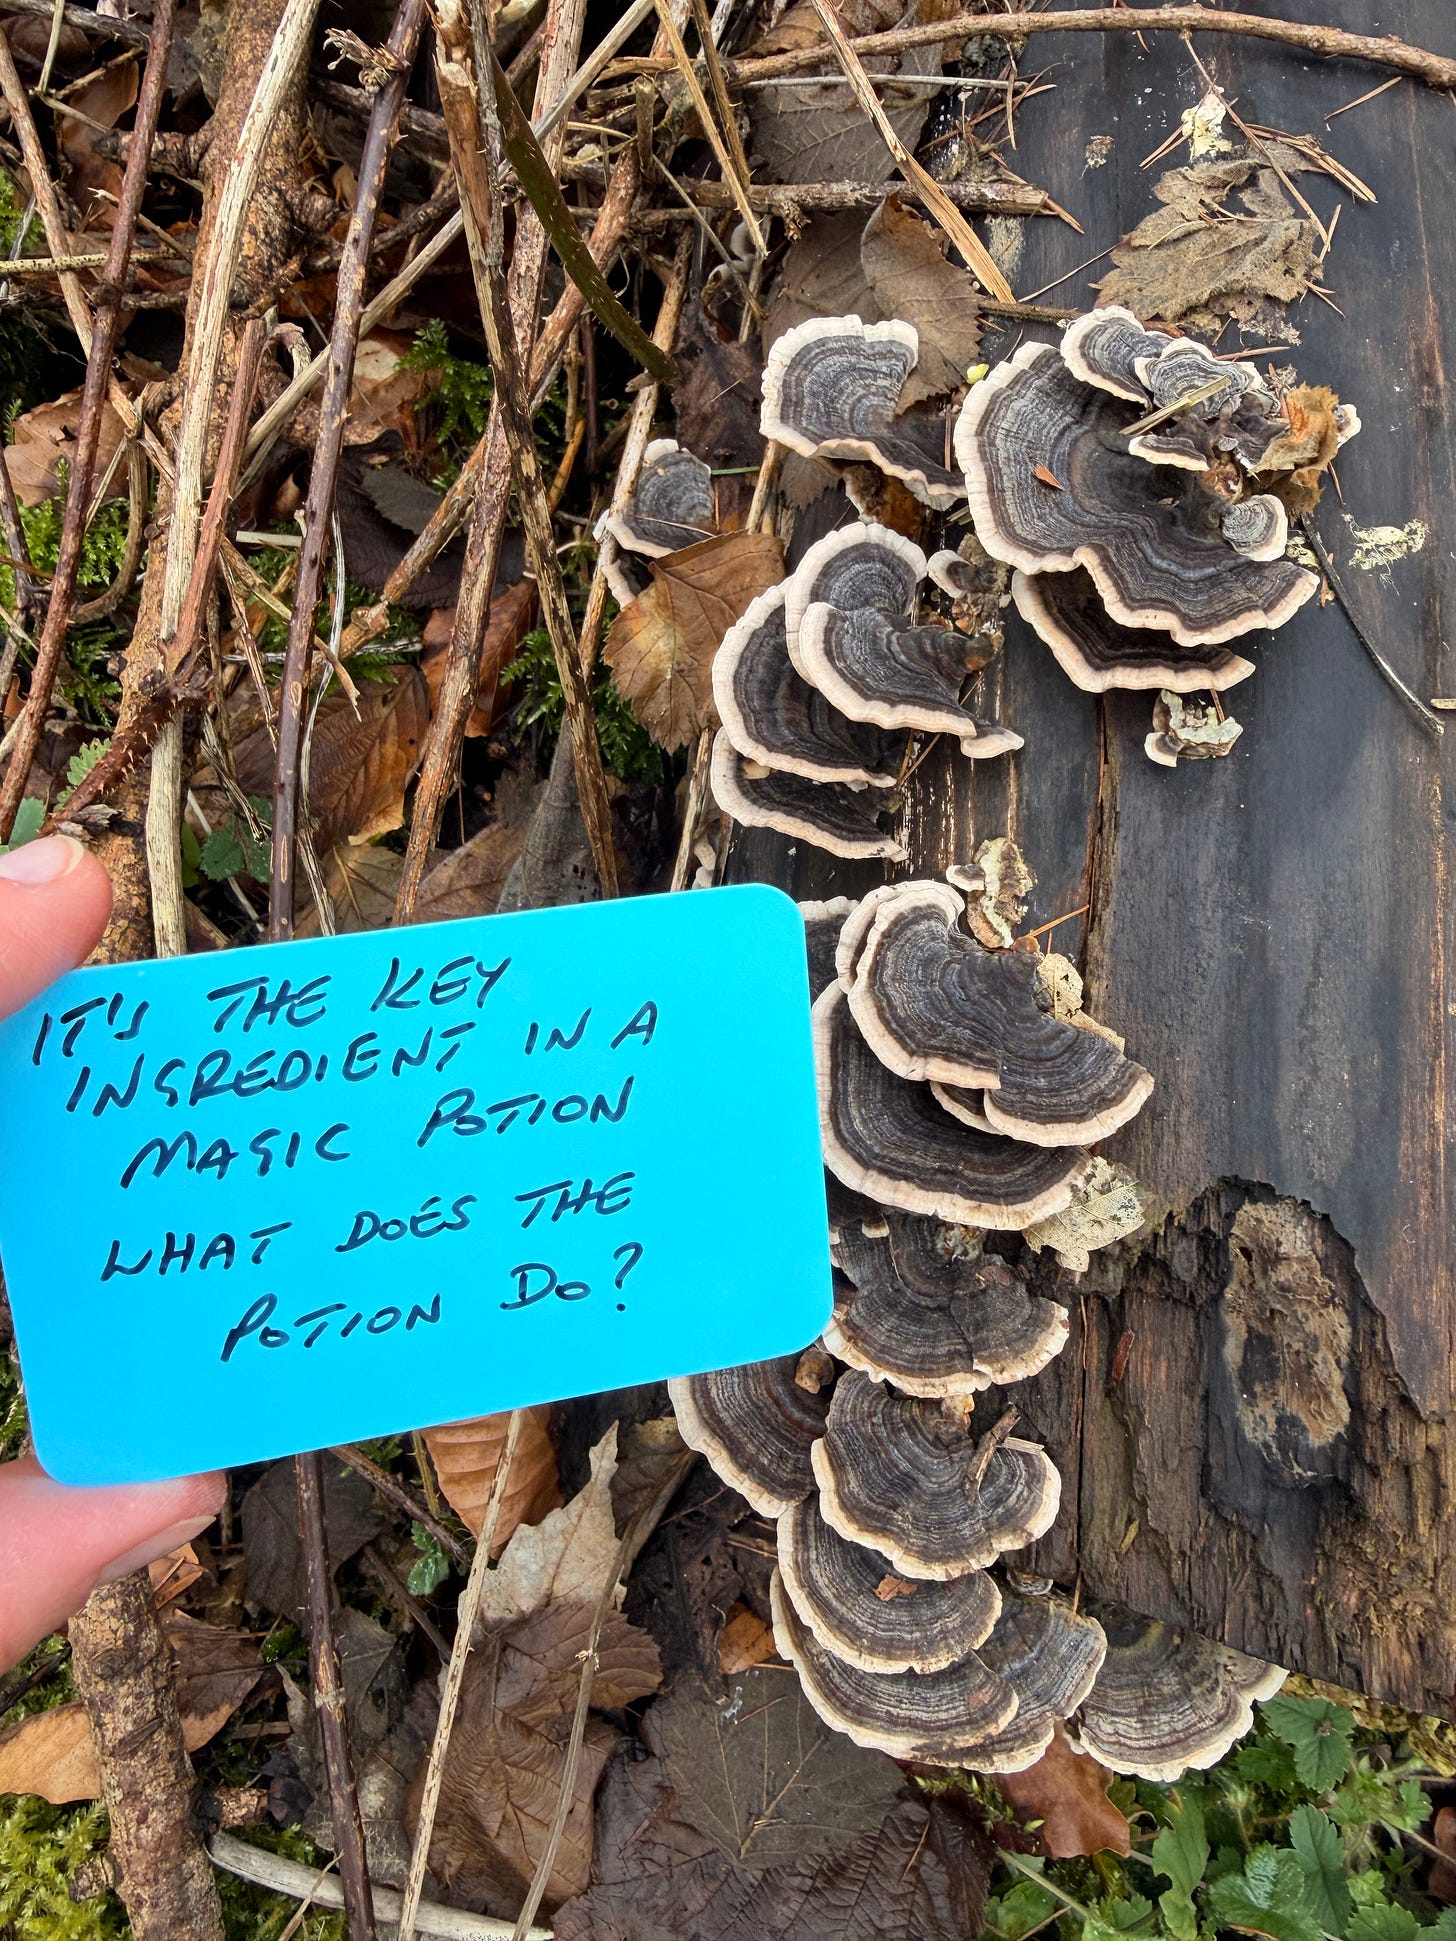 IT'S THE KEY
INGREDIENT IN A
MAGIC POTION
WHAT DOES THE
POTION DO?